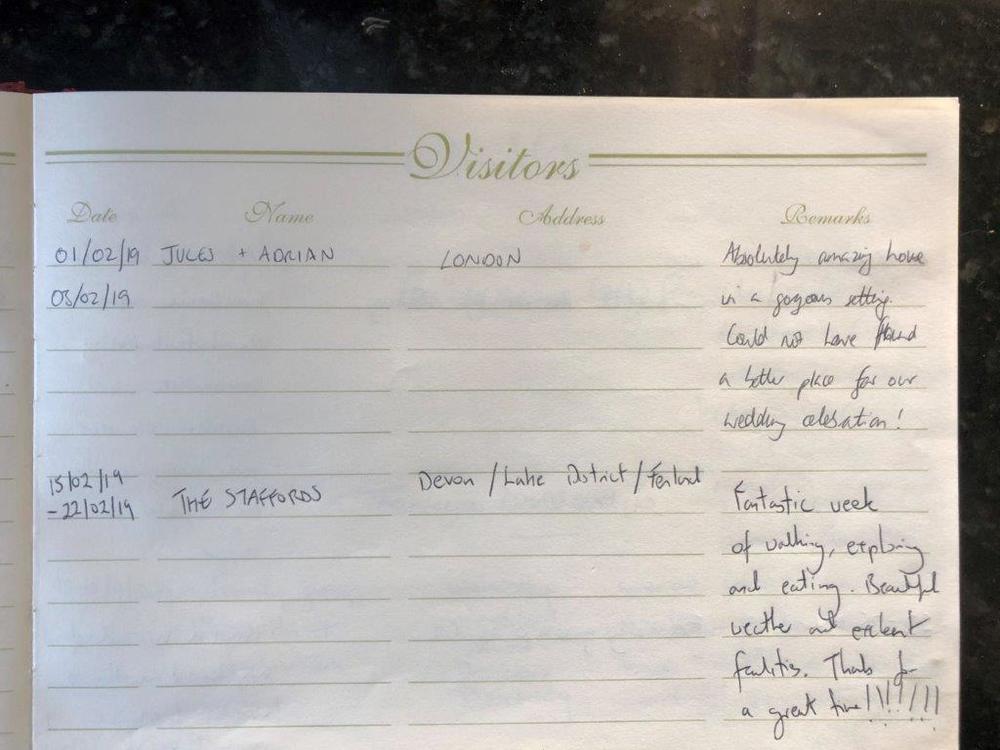 Visitors
Date Name Address Remarks
01/02/19 JULES + ADRIAN LONDON Absolutely amazing house
03/02/19 in a gorgeous setting.
Could not have found
a better place for our
wedding celebration!
15/02/19 Devon / Lake District / Fenland
- 22/02/19 THE STAFFORDS Fantastic week
of walking, exploring
and eating. Beautiful
weather and excellent
facilities. Thanks for
a great time!!!!!!!